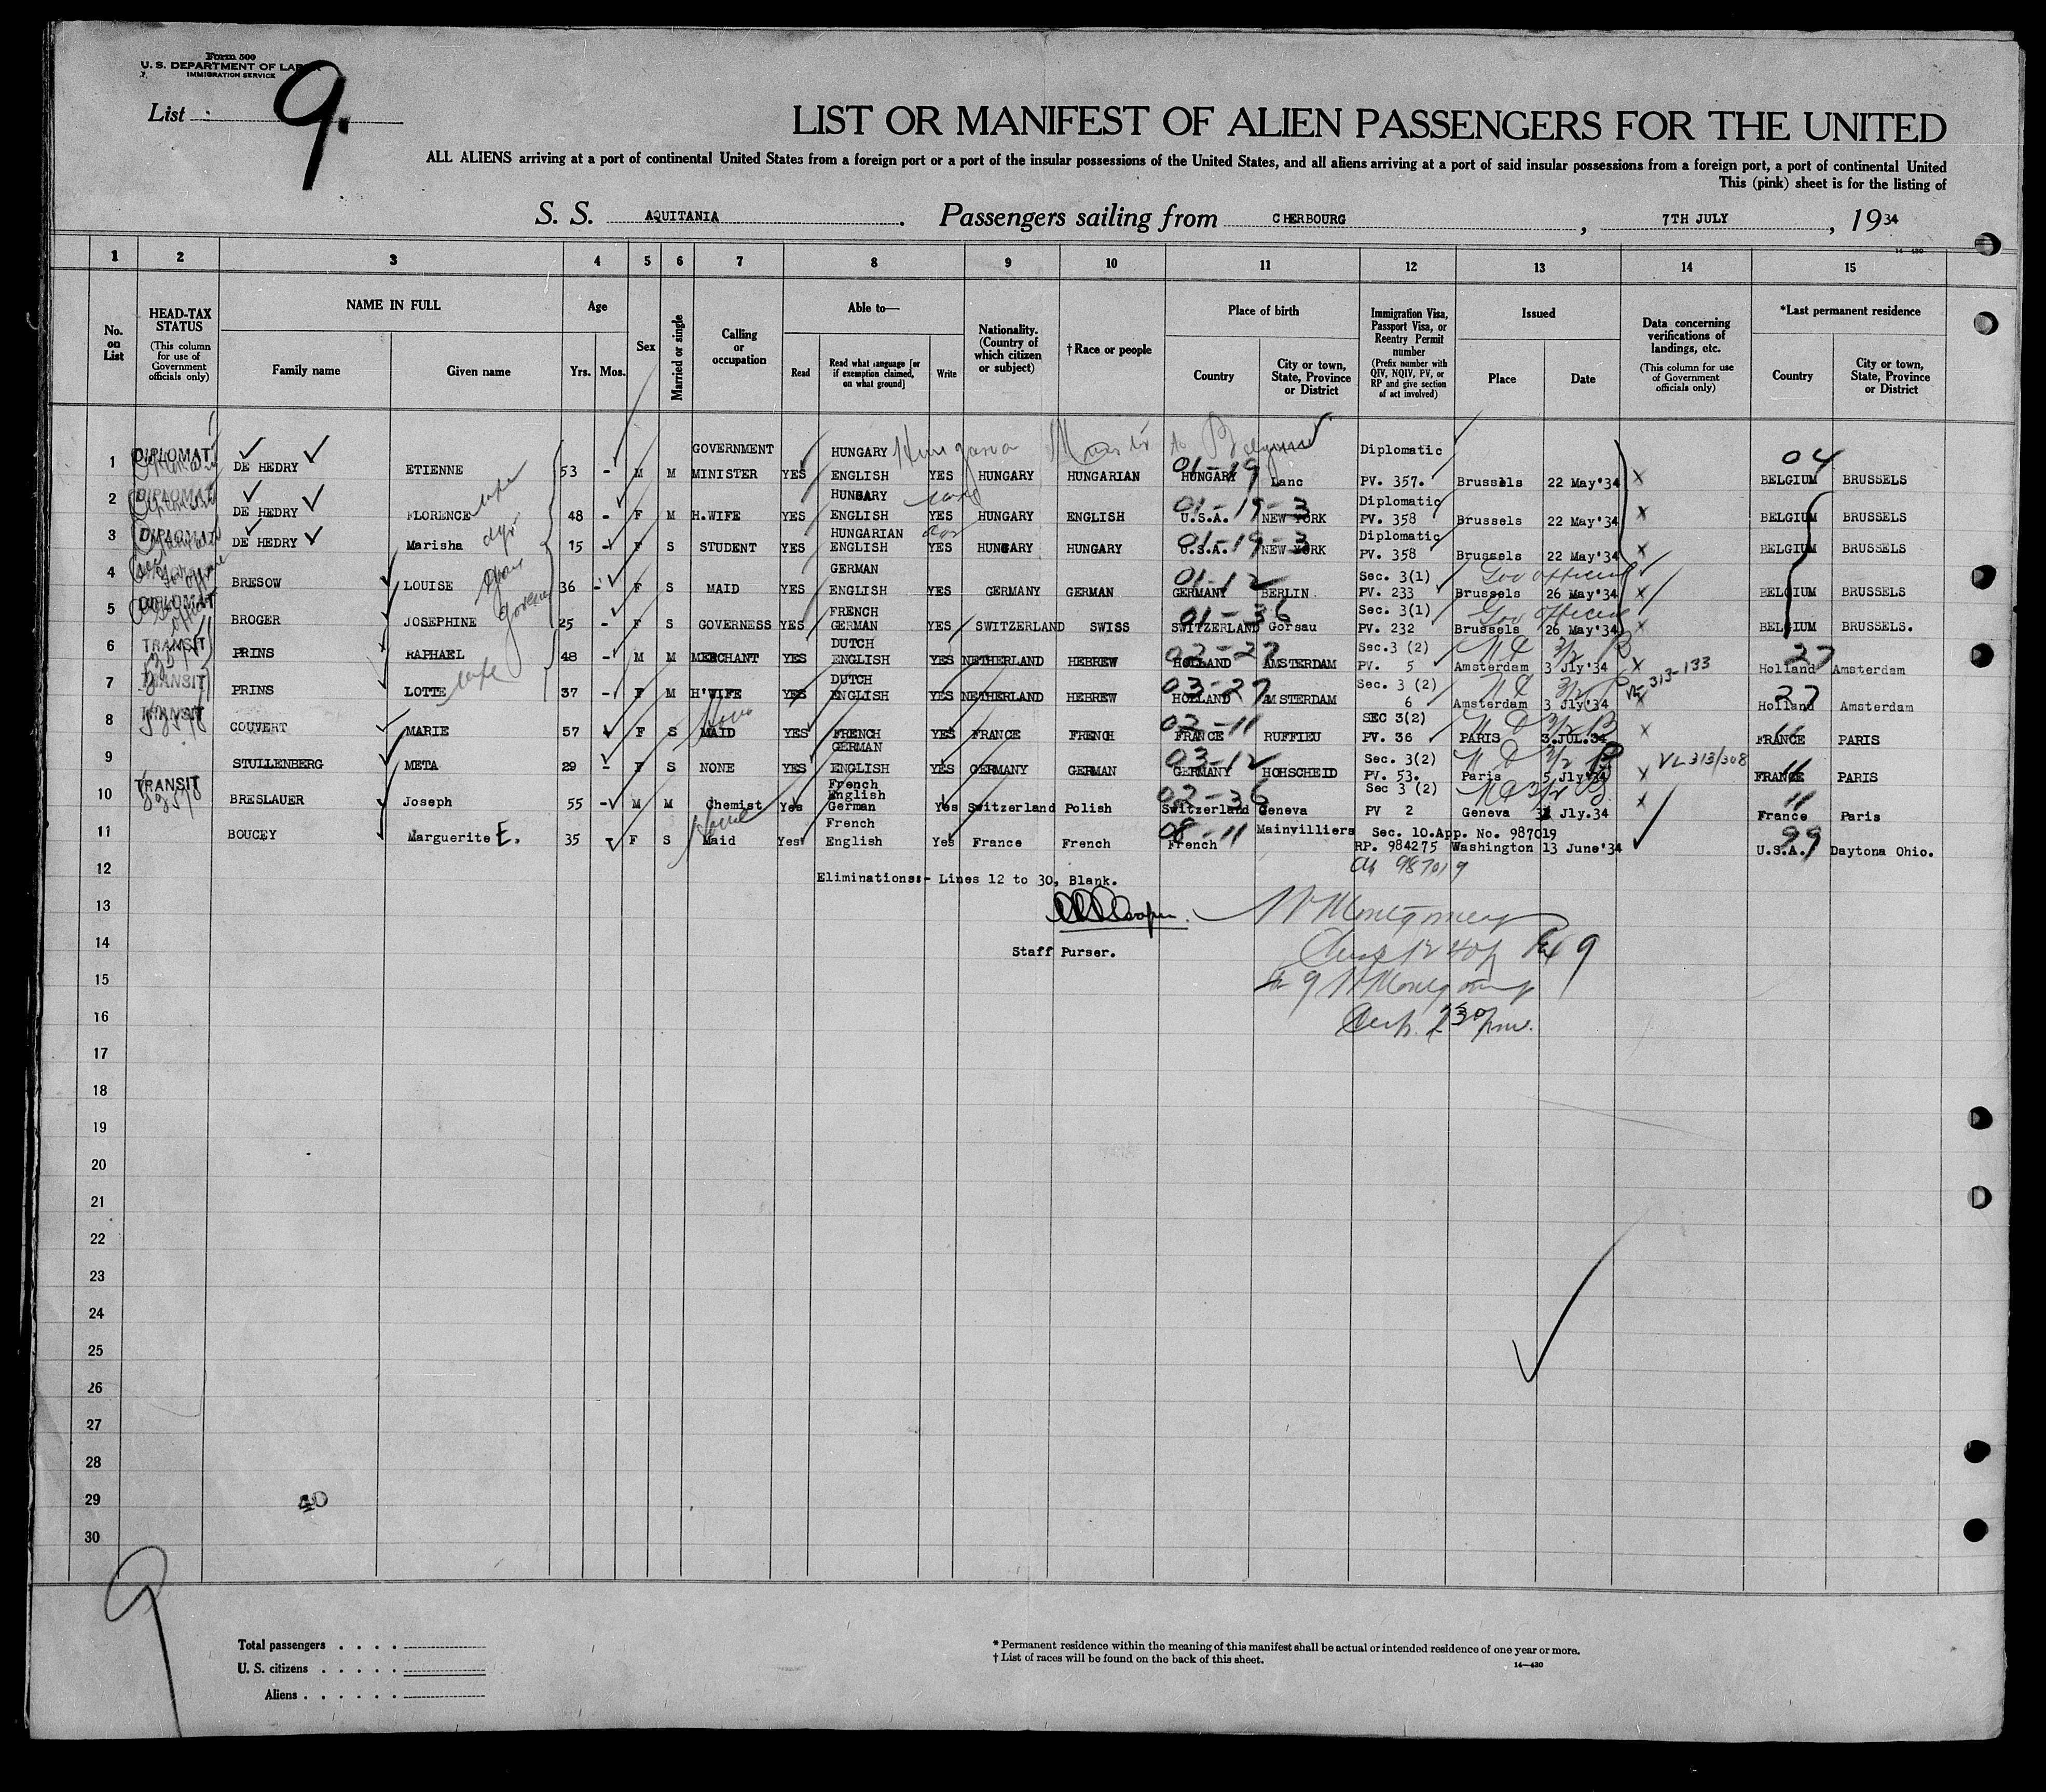 Form 500
U. S. DEPARTMENT OF LAB
IMMIGRATION SERVICE
List 9.
LIST OR MANIFEST OF ALIEN PASSENGERS FOR THE UNITED
ALL ALIENS arriving at a port of continental United States from a foreign port or a port of the insular possessions of the United States, and all aliens arriving at a port of said insular possessions from a foreign port, a port of continental United
This (pink) sheet is for the listing of
S. S. AQUITANIA. Passengers sailing from CHERBOURG, 7TH JULY, 1934
14—430
1 2 3 4 5 6 7 8 9 10 11 12 13 14 15
No. on List
HEAD-TAX STATUS (This column for use of Government officials only)
NAME IN FULL
Family name
Given name
Age
Yrs.
Mos.
Sex
Married or single
Calling or occupation
Able to—
Read
Read what language [or if exemption claimed, on what ground]
Write
Nationality. (Country of which citizen or subject)
† Race or people
Place of birth
Country
City or town, State, Province or District
Immigration Visa, Passport Visa, or Reentry Permit number (Prefix number with QIV, NQIV, PV, or RP and give section of act involved)
Issued
Place
Date
Data concerning verifications of landings, etc. (This column for use of Government officials only)
*Last permanent residence
Country
City or town, State, Province or District
1 DIPLOMAT DE HEDRY ETIENNE 53 - M M GOVERNMENT MINISTER YES HUNGARY ENGLISH YES HUNGARY HUNGARIAN 01-19 HUNGARY Lanc Diplomatic PV. 357. Brussels 22 May'34 X 04 BELGIUM BRUSSELS
2 DIPLOMAT DE HEDRY FLORENCE wife 48 - F M H.WIFE YES HUNGARY ENGLISH YES HUNGARY ENGLISH 01-19-3 U.S.A. NEW YORK Diplomatic PV. 358 Brussels 22 May'34 X BELGIUM BRUSSELS
3 DIPLOMAT DE HEDRY Marisha 15 - F S STUDENT YES HUNGARIAN ENGLISH YES HUNGARY HUNGARY 01-19-3 U.S.A. NEW YORK Diplomatic PV. 358 Brussels 22 May'34 X BELGIUM BRUSSELS
4 BRESOW LOUISE 36 - F S MAID YES GERMAN ENGLISH YES GERMANY GERMAN 01-12 GERMANY BERLIN Sec. 3(1) PV. 233 Gov official Brussels 26 May'34 X BELGIUM BRUSSELS
5 DIPLOMAT BROGER JOSEPHINE 25 - F S GOVERNESS YES FRENCH GERMAN YES SWITZERLAND SWISS 01-36 SWITZERLAND Gorsau Sec. 3(1) PV. 232 Gov official Brussels 26 May'34 X BELGIUM BRUSSELS.
6 TRANSIT PRINS RAPHAEL 48 - M M MERCHANT YES DUTCH ENGLISH YES NETHERLAND HEBREW 02-27 HOLLAND AMSTERDAM Sec.3 (2) PV. 5 Amsterdam 3 Jly'34 X 27 Holland Amsterdam
7 TRANSIT PRINS LOTTE wife 37 - F M H'WIFE YES DUTCH ENGLISH YES NETHERLAND HEBREW 03-27 HOLLAND AMSTERDAM Sec. 3 (2) 6 Amsterdam 3 Jly'34 VL 313-133 X 27 Holland Amsterdam
8 TRANSIT COUVERT MARIE 57 F S MAID YES FRENCH YES FRANCE FRENCH 02-11 FRANCE RUFFIEU SEC 3(2) PV. 36 PARIS 3.JUL.34 X 11 FRANCE PARIS
9 STULLENBERG META 29 - F S NONE YES GERMAN ENGLISH YES GERMANY GERMAN 03-12 GERMANY HOHSCHEID Sec. 3(2) PV. 53. Paris 5 Jly'34 X VL313/308 11 FRANCE PARIS
10 TRANSIT BRESLAUER Joseph 55 - M M Chemist Yes French English German Yes Switzerland Polish 02-36 Switzerland Geneva Sec 3 (2) PV 2 Geneva Jly.34 X 11 France Paris
11 BOUCEY Marguerite E. 35 - F S Maid Yes French English Yes France French 08-11 French Mainvilliers Sec. 10.App. No. 987019 RP. 984275 Washington 13 June'34 99 U.S.A. Daytona Ohio.
12 Eliminations:- Lines 12 to 30, Blank. 987019
13 W Montgomery
14 Staff Purser. 9
15 9 W Montgomery
16
17
18
19
20
21
22
23
24
25
26
27
28
29 40
30
9
Total passengers . . . .
U. S. citizens . . . . .
Aliens . . . . . .
* Permanent residence within the meaning of this manifest shall be actual or intended residence of one year or more.
† List of races will be found on the back of this sheet.
14—430